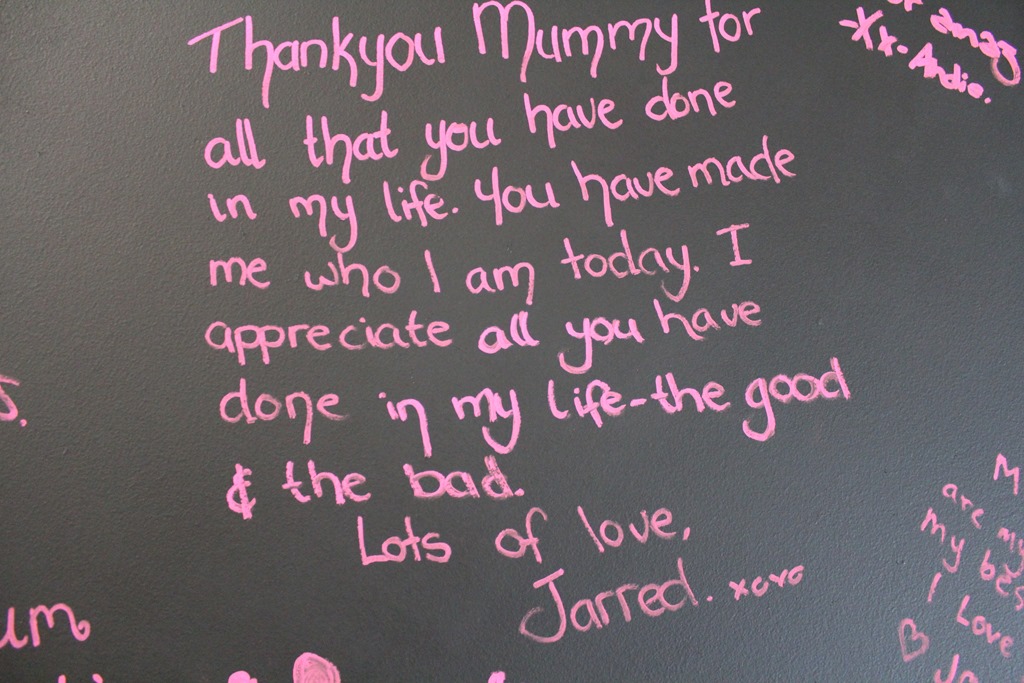 Thankyou Mummy for
all that you have done
in my life. You have made
me who I am today. I
appreciate all you have
done in my life-the good
& the bad.
Lots of love,
Jarred. xoxo
Xx-Andie.
um
M
are my
My bes
I Love